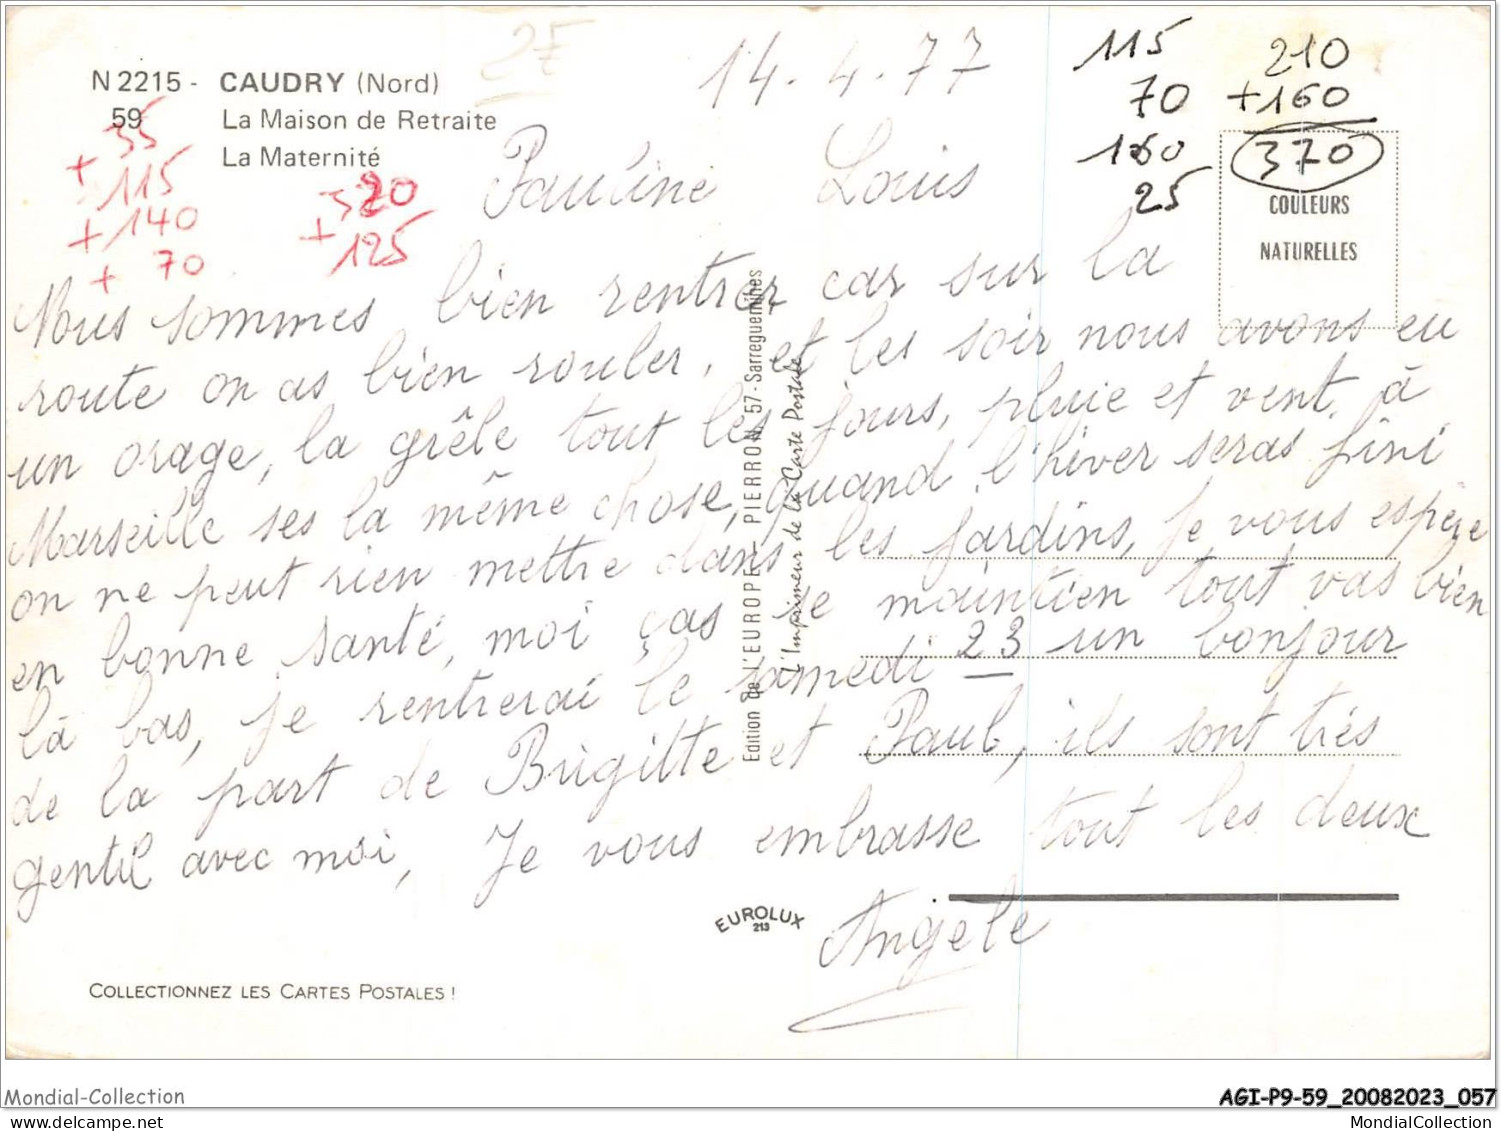 25
N 2215 - CAUDRY (Nord)
59
La Maison de Retraite
La Maternité
14.4.77
115
70
160
25
210
+160
370
35
+ 115
+ 140
+ 70
320
+ 125
COULEURS
NATURELLES
Pauline Louis
Nous sommes bien rentrer car sur la
route on as bien rouler, et les soir nous avons eu
un orage, la grêle tout les jours, pluie et vent, à
Marseille ses la même chose, quand l'hiver seras fini
on ne peut rien mettre dans les jardins, je vous espère
en bonne santé, moi ças se maintien tout vas bien
là bas, je rentrerai le samedi 23 un bonjour
de la part de Brigitte et Paul, ils sont très
gentil avec moi, Je vous embrasse tout les deux
Angèle
Edition de L'EUROPE - PIERRON 57 - Sarreguemines
L'Imprimeur de la Carte Postale
EUROLUX
213
COLLECTIONNEZ LES CARTES POSTALES !
Mondial-Collection
AGI-P9-59_20082023_057
delcampe.net
MondialCollection